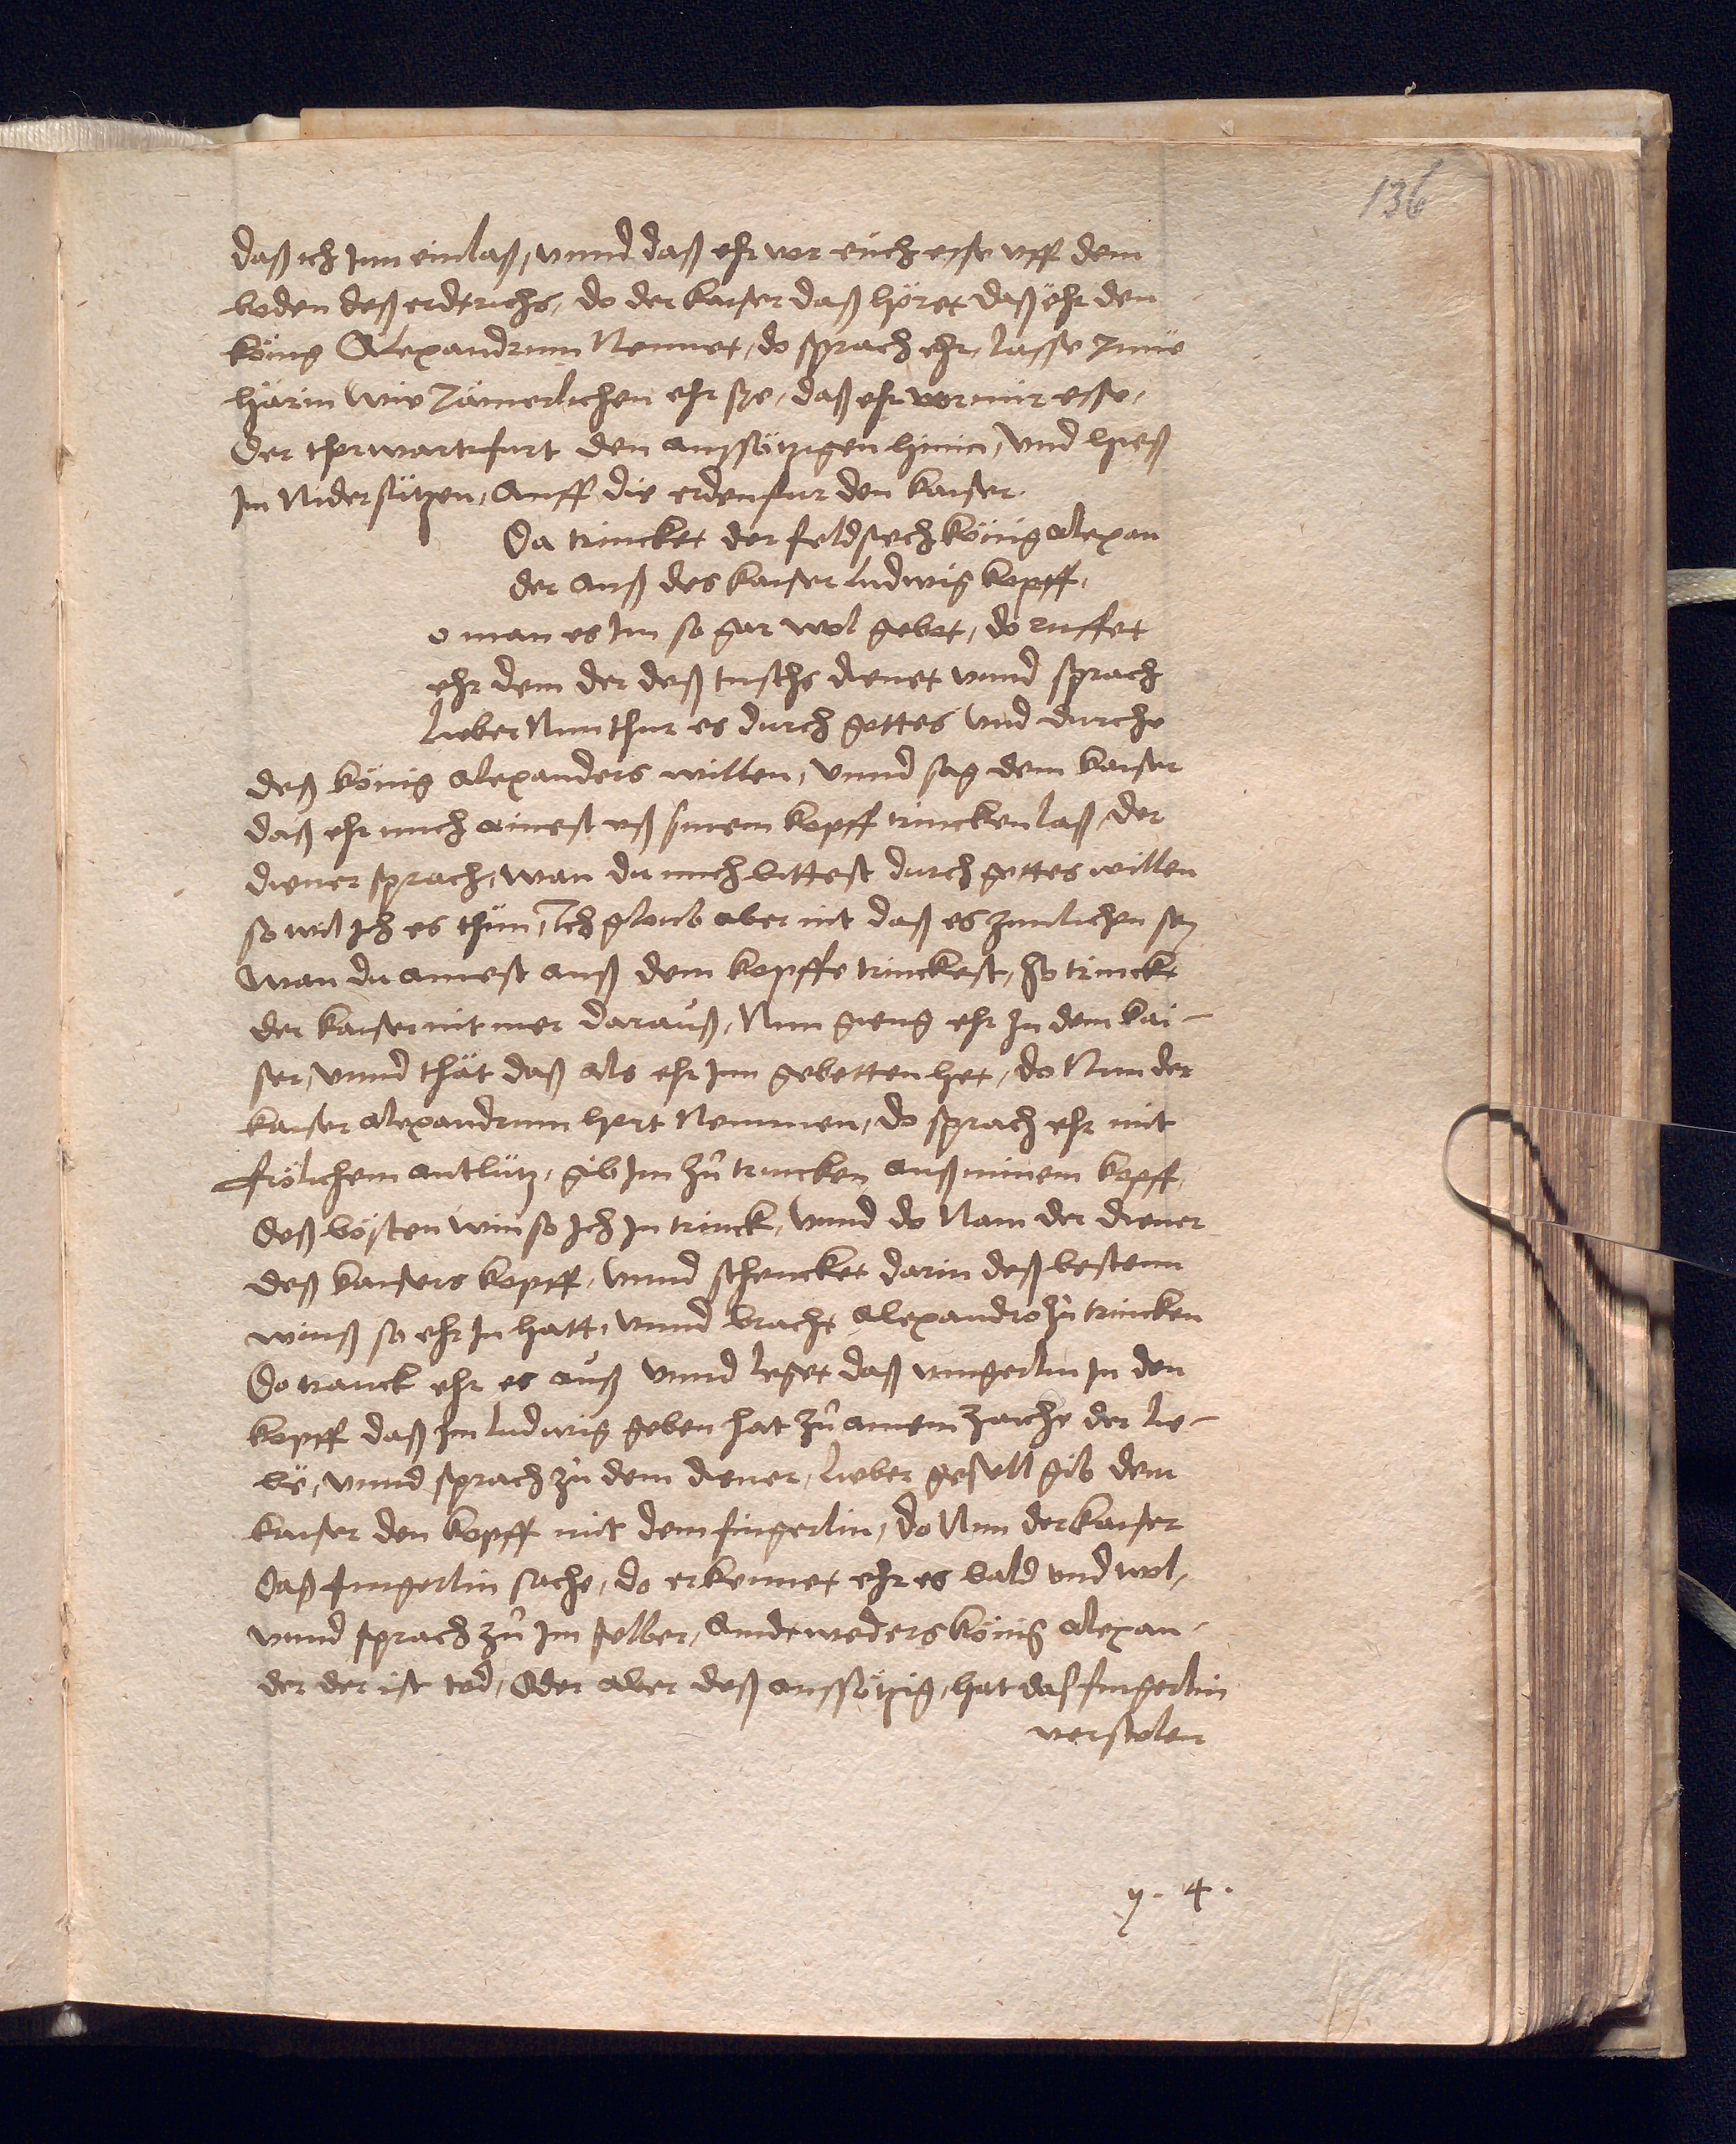 136
daß ich Jnn einlaß, vnnd daß ehr vor eüch esse vff dem
boden deß erdtrichs, do der kaiser daß höret daß ehr den
köng Alexandrum Nennet, do sprach ehr, lasse Jnnë
härin wie Jämerlichen ehr sye, daß ehr vor mir esse,
der thorwart fürt den aussötzigen hinin, vnd hieß
Jn Nider sützen, Auff die erden fur den kaiser.
Da trincket der feldsiech könig alexan
der auß des kaiser ludwig kopff,
o man es Jm so gar wol gebot, do ruffet
ehr dem der deß tischs dienet vnnd sprach
Lieber Nun thur es durch gottes vnd durche
deß könig alexanders willen, vnnd sag dem kaiser
daß ehr mich ainest vß sinem kopff trincken laß, der
diener sprach, wan du mich bittest durch gottes willen
so wil Jch es thün, Jch gloub aber nit daß es zimlichen sey
wan du ainest auß dem kopffe trinckest, so trinckt
der kaiser nit mer darauß, Nun gieng ehr zu dem kai-
ser, vnnd thät daß als ehr Jnn gebetten het, do Nun der
kaiser alexandrum hort Nemmen, do sprach ehr mit
frölichem antlütz, gib Jm zů trincken auß minem kopff,
deß bösten win so Jch Jn trinck, vnnd do Nam der diener
deß kaisers kopff, vnnd schencket darin deß bestenn
winß so ehr Jn hatt, vnnd bracht alexandro zů trincken
Do tranck ehr es auß vnnd leget daß vingerlin Jn den
kopff daß Jm ludwig geben hat zů ainem zaiche der lie-
bë, vnnd sprach zů dem diener, lieber gesell gib dem
kaiser den kopff mit dem fingerlin, do Nun der kaiser
daß fingerlin sache, do erkennet ehr es bald vnd wol,
vnnd sprach zů Jm selber, aindeweders könig alexan-
der der ist tod, Oder aber deß aussötzig, hat daß fingerlin
verstolen
y. 4.